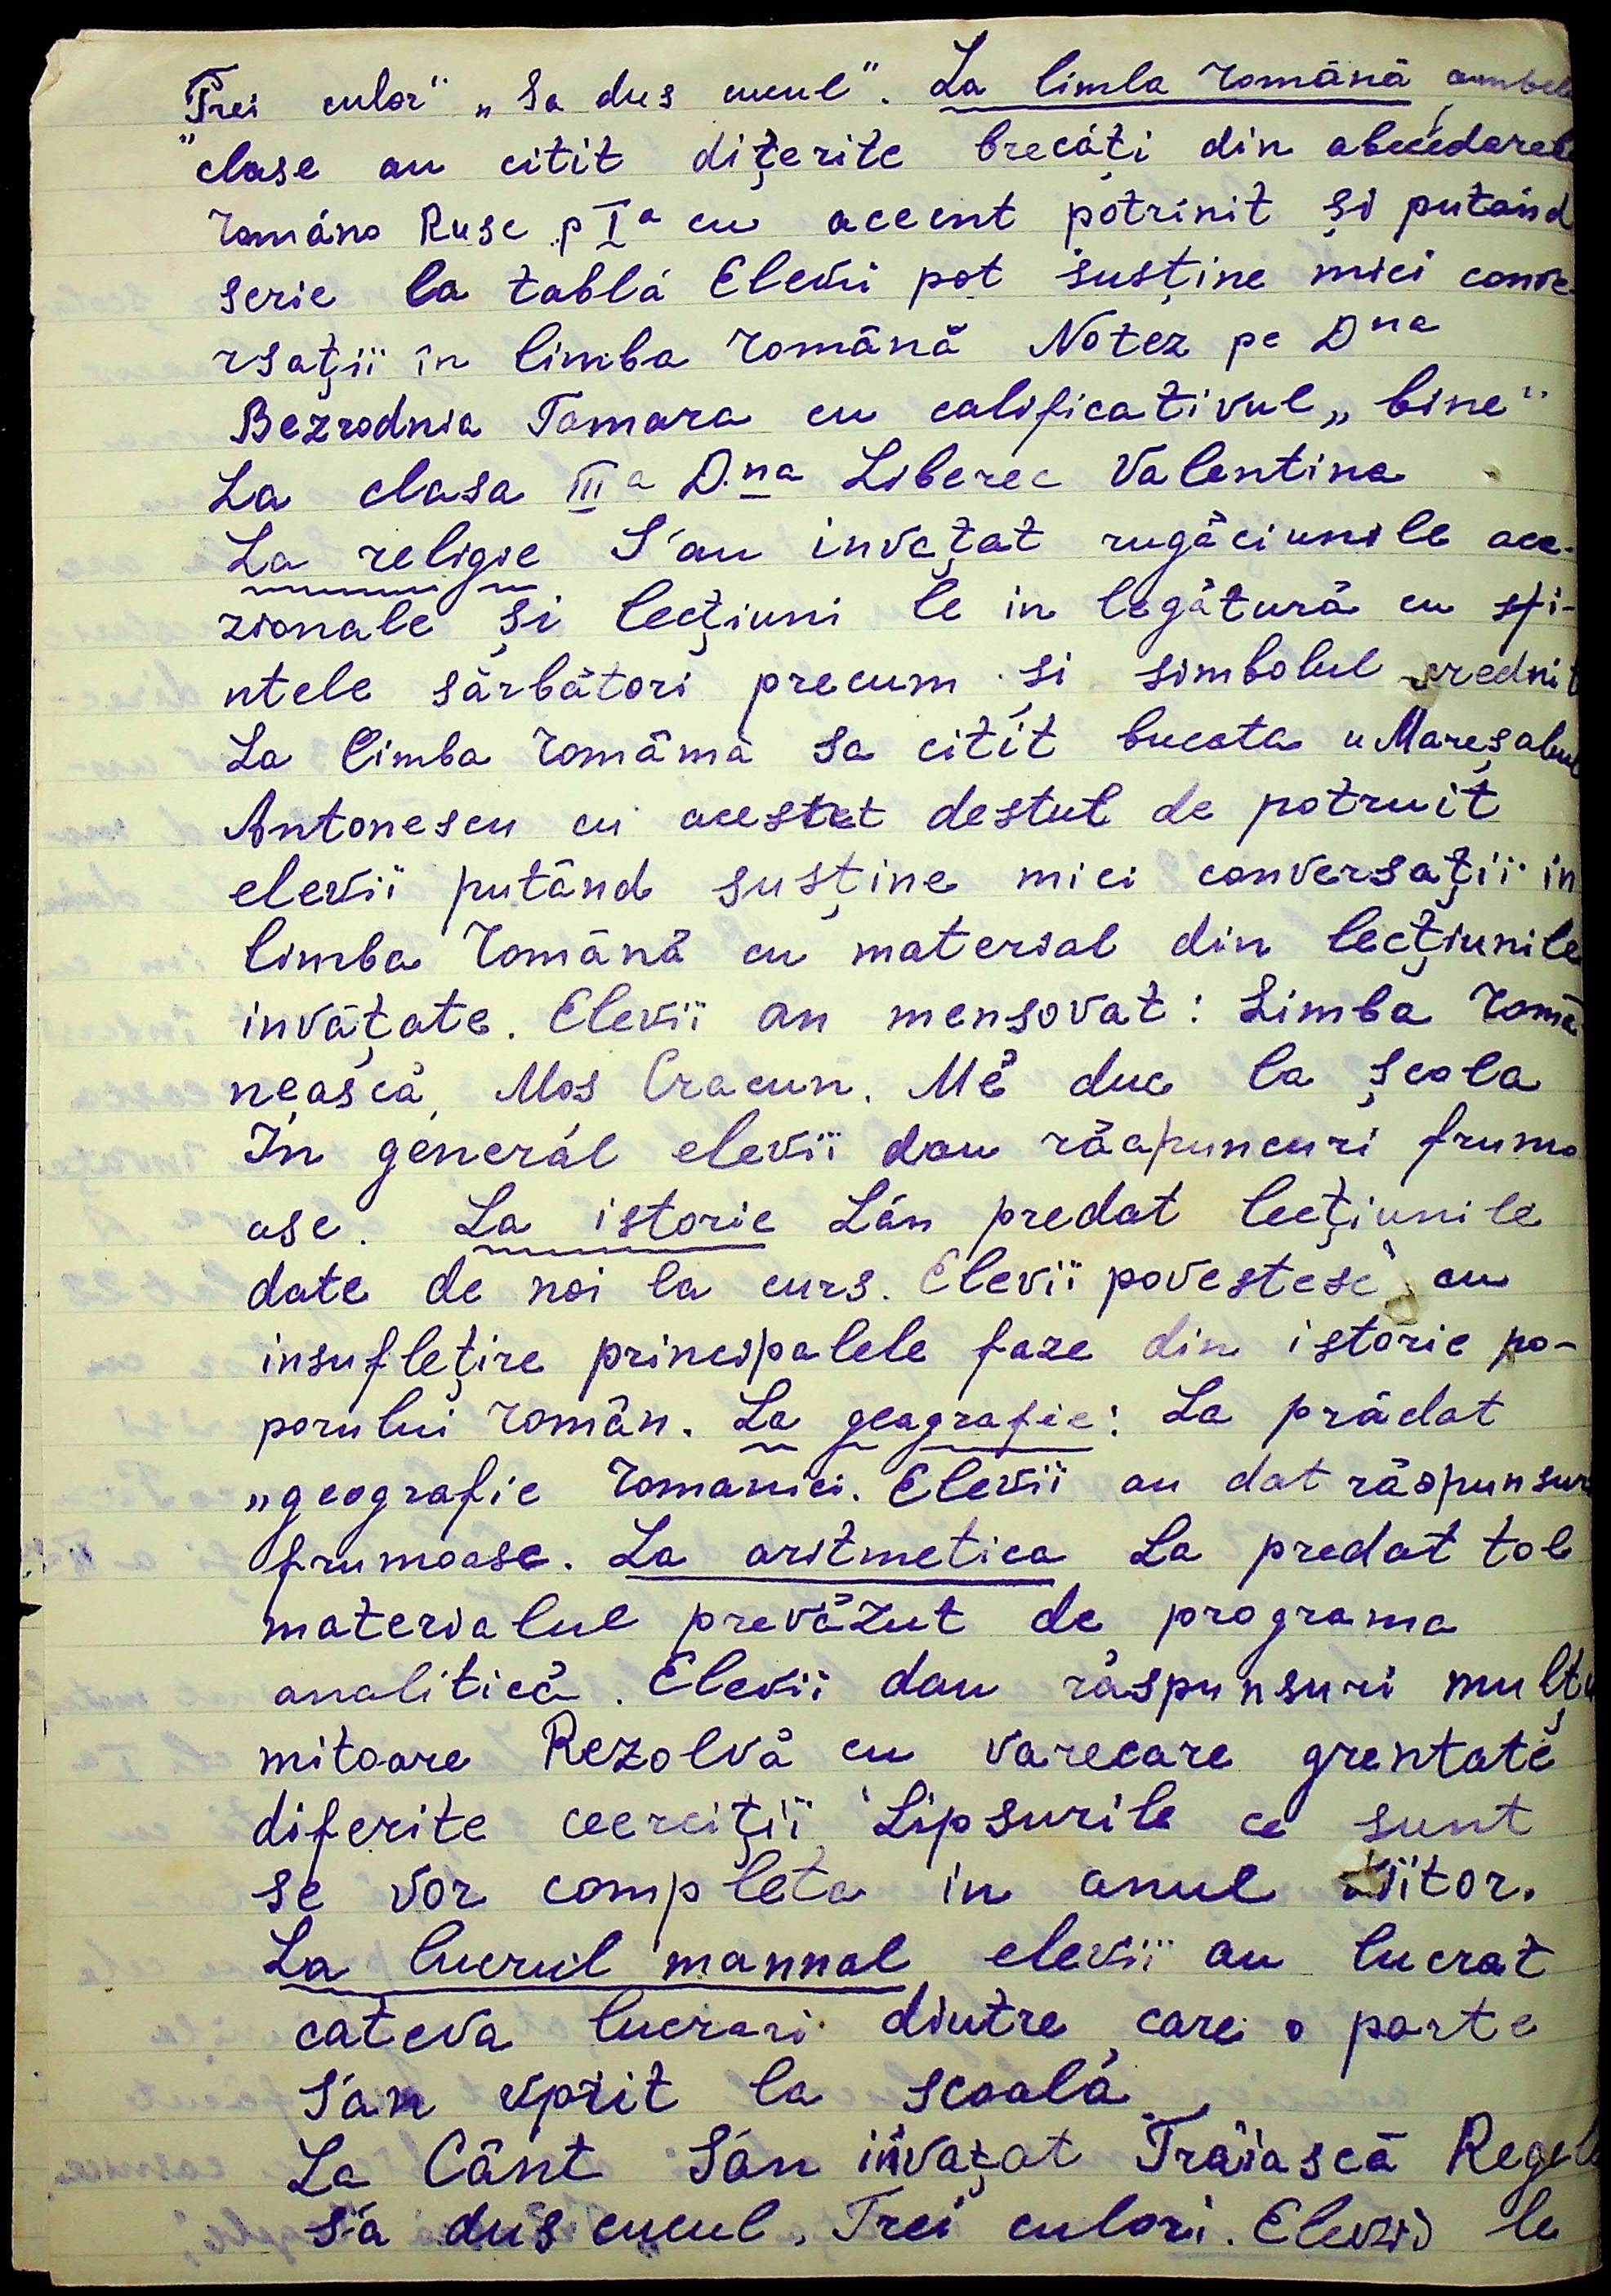 Trei culor" „Sa dus cucul". La limla română ambele
"clase au citit diţerite brecăţi din abecedarele
Româno Ruse p Iª cu accent potrinit şi putând
scrie la tablá Elevii pot susţine mici conve-
rsaţii în limba română Notez pe Dna
Bezrodnia Tamara cu calificativul „bine"
La clasa III a D.na Liberec Valentina
La religie S'au invaţat rugăciunile oca-
zionale şi lecţiuni le in legătură cu sfi-
ntele sărbători precum şi simbolul crednit
La limba română sa citit bucata „Mareşalul
Antonescu cu acestet destul de potruit
elevii putând susţine mici conversaţii in
limba română cu material din lecţiunile
invăţate. Elevii au mensovat: Limba Romă
nească, Mos Cracun. Mĕ duc la şcola
În general elevii dau răapuncuri frumo
ase. La istorie Lán predat lecţiunile
date de noi la curs. Elevii povestesc cu
insufleţire principalele faze din istorie po-
porului român. La geagrafie: La prădat
„geografie Romaniei. Elevii au dat răspunsuri
frumoase. La aritmetica La predat tol
materialul prevăzut de programa
analitică. Elevii dau răspunsuri mulţu
mitoare Rezolvă cu varecare grentate
diferite ceerciţii Lipsurile ce sunt
se vor completa in anul viitor.
La lucrul mannal elevii au lucrat
cateva lucrari dintre care o parte
S'an oprit la scoală
La Cânt S'án invaţat Trăiască Regele
s'a dus cucul, Trei culori. Elevii le